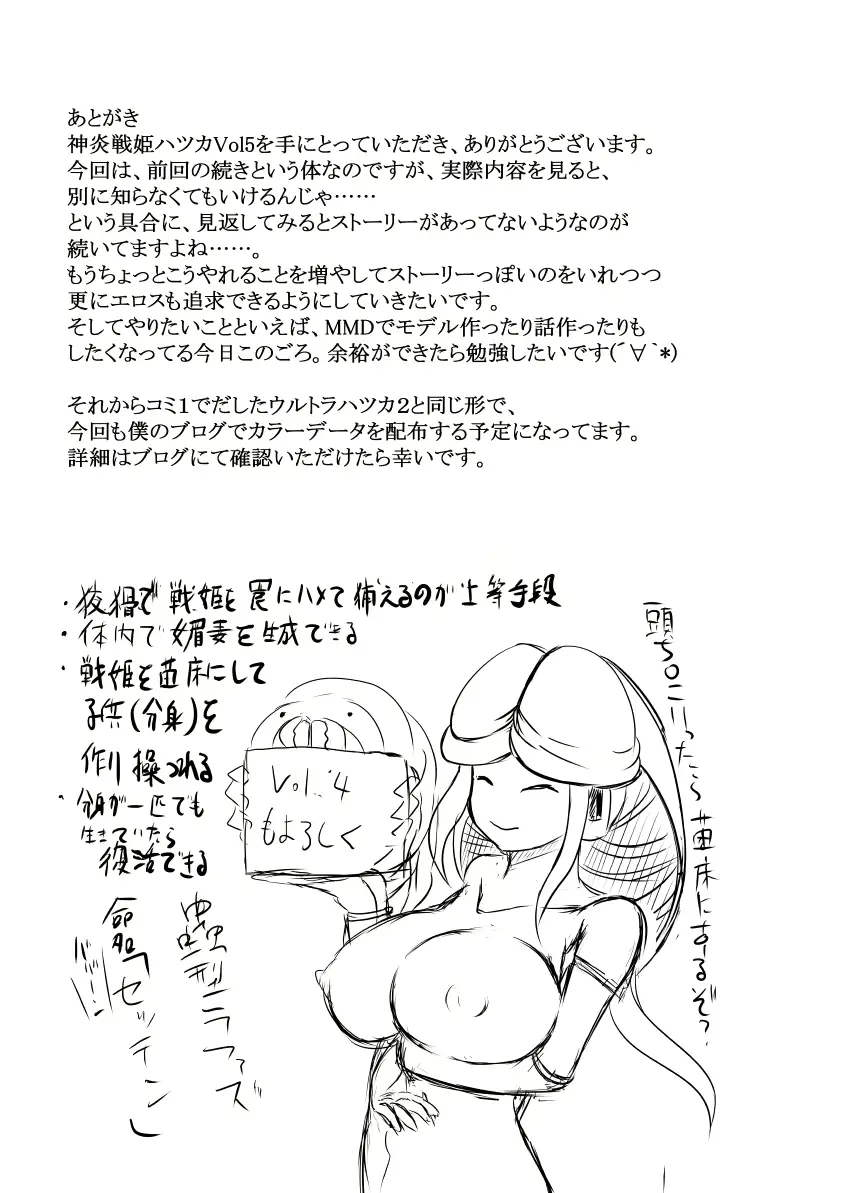 あとがき
神炎戦姫ハツカVol5を手にとっていただき、ありがとうございます。
今回は、前回の続きという体なのですが、実際内容を見ると、
別に知らなくてもいけるんじゃ……
という具合に、見返してみるとストーリーがあってないようなのが
続いてますよね……。
もうちょっとこうやれることを増やしてストーリーっぽいのをいれつつ
更にエロスも追求できるようにしていきたいです。
そしてやりたいことといえば、MMDでモデル作ったり話作ったりも
したくなってる今日このごろ。余裕ができたら勉強したいです(´∀｀*)
それからコミ1でだしたウルトラハツカ２と同じ形で、
今回も僕のブログでカラーデータを配布する予定になってます。
詳細はブログにて確認いただけたら幸いです。
・狡猾で戦姫を罠にハメて捕えるのが上等手段
・体内で媚毒を生成できる
・戦姫を苗床にして
子供(分身)を
作り操つれる
・分身が一匹でも
生きていたら
復活できる
頭ち〇こいったら苗床にするぞ?
Vol.4
もよろしく
型ニラファズ
命名「セッチン」
ババーン